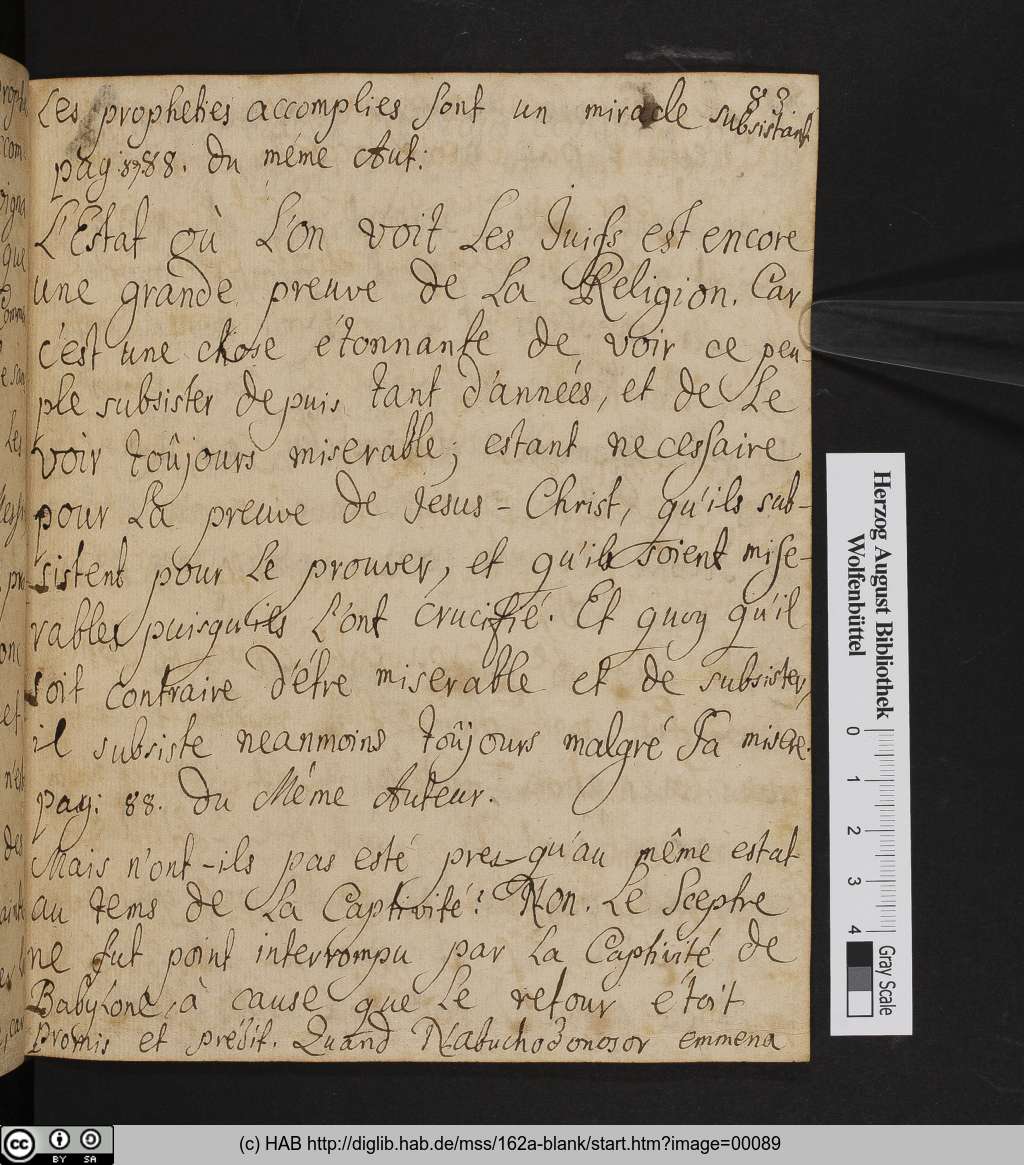 83
Les propheties accomplies sont un miracle subsistant
pag: 87. 88. du même Aut:
L'Estat où L'on voit Les Juifs est encore
une grande preuve de La Religion. Car
c'est une chose étonnante de voir ce peu-
ple subsister depuis tant d'années, et de Le
voir toûjours miserable; estant necessaire
pour La preuve de Jesus-Christ, qu'ils sub-
sistent pour Le prouver, et qu'ils soient mise-
rables puisqu'ils L'ont crucifié. Et quoy qu'il
soit contraire d'étre miserable et de subsister,
il subsiste neanmoins toûjours malgré sa misere.
pag: 88. du Méme Auteur.
Mais n'ont-ils pas esté presqu'au même estat
au tems de La Captivité? Non. Le Sceptre
ne fut point interrompu par La Captivité de
Babylone, à cause que Le retour étoit
Promis et prédit. Quand Nabuchodonosor emmena
Herzog August Bibliothek
Wolfenbüttel
0 1 2 3 4
Gray Scale
cc BY SA
(c) HAB http://diglib.hab.de/mss/162a-blank/start.htm?image=00089